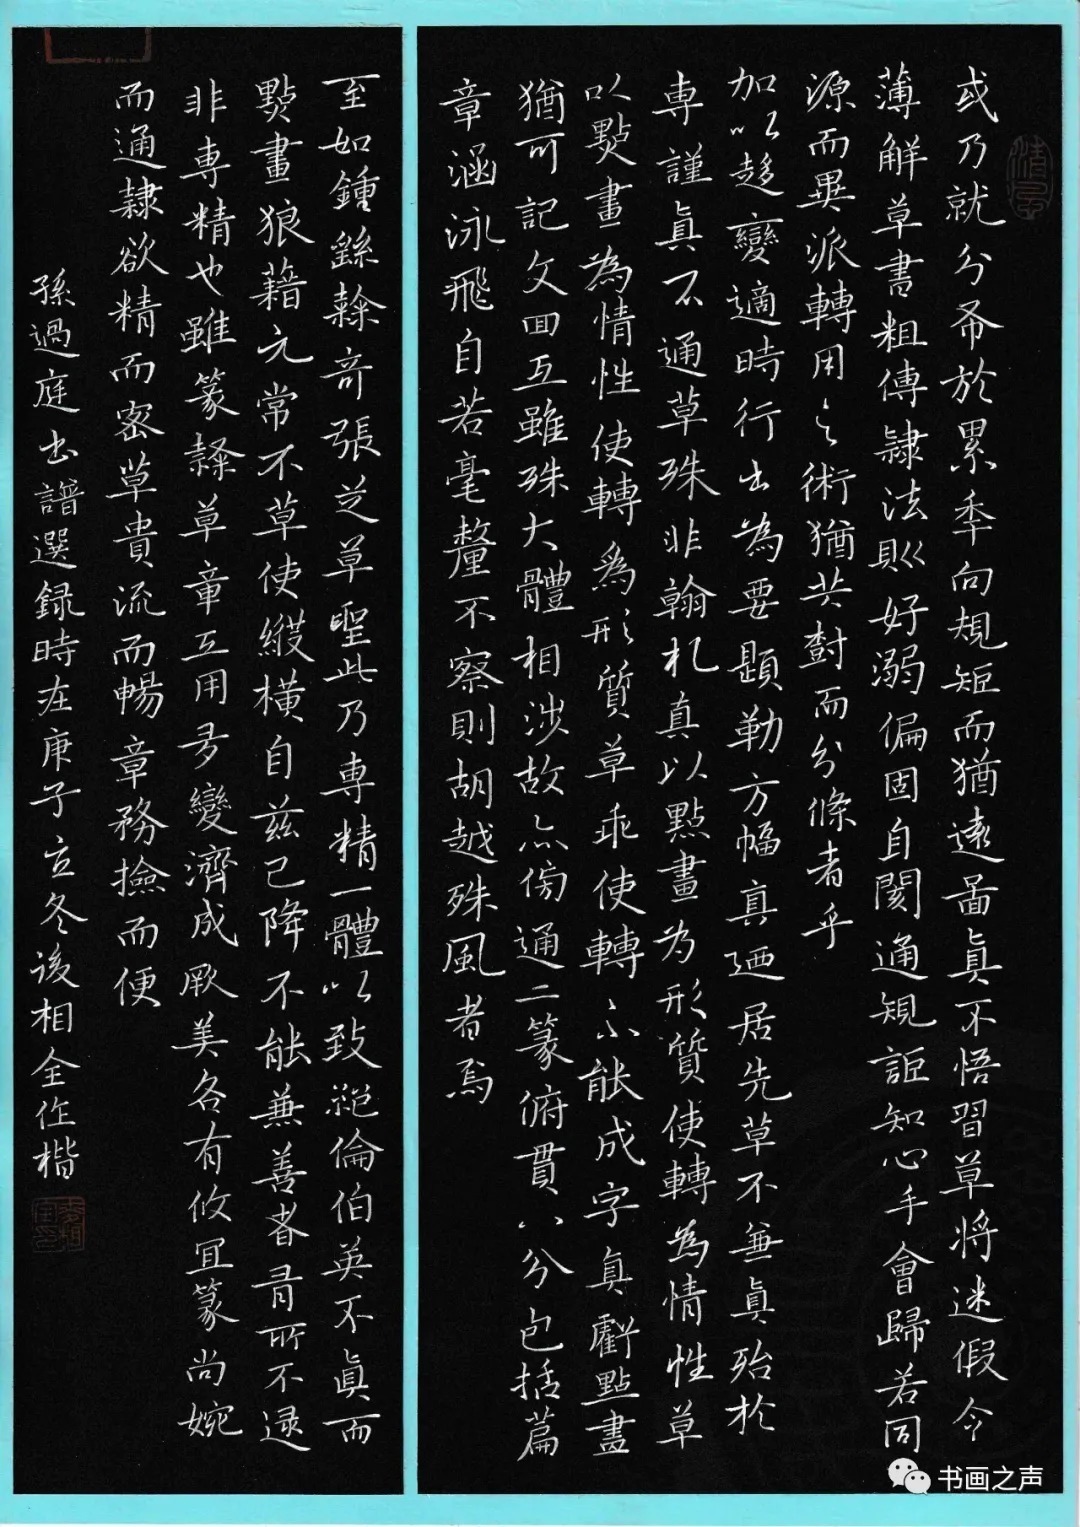 或乃就分布於累年向規矩而猶遠啚真不悟習草將迷假令
薄解草書粗傳隸法則好溺偏固自閡通規詎知心手會歸若同
源而異派轉用之術猶共樹而分條者乎
加以趍變適時行書為要題勒方幅真廼居先草不兼真殆於
専謹真不通草殊非翰札真以點畫為形質使轉為情性草
以點畫為情性使轉為形質草乖使轉不能成字真虧點畫
猶可記文回互雖殊大體相涉故亦傍通二篆俯貫八分包括篇
章涵泳飛白若毫釐不察則胡越殊風者焉
至如鍾繇隸奇張芝草聖此乃専精一體以致絕倫伯英不真而
點畫狼藉元常不草使縱橫自茲已降不能兼善者有所不逮
非専精也雖篆隸草章工用多變濟成厥美各有攸宜篆尚婉
而通隸欲精而密草貴流而暢章務撿而便
孫過庭書譜選録時在庚子立冬後相全作楷
书画之声